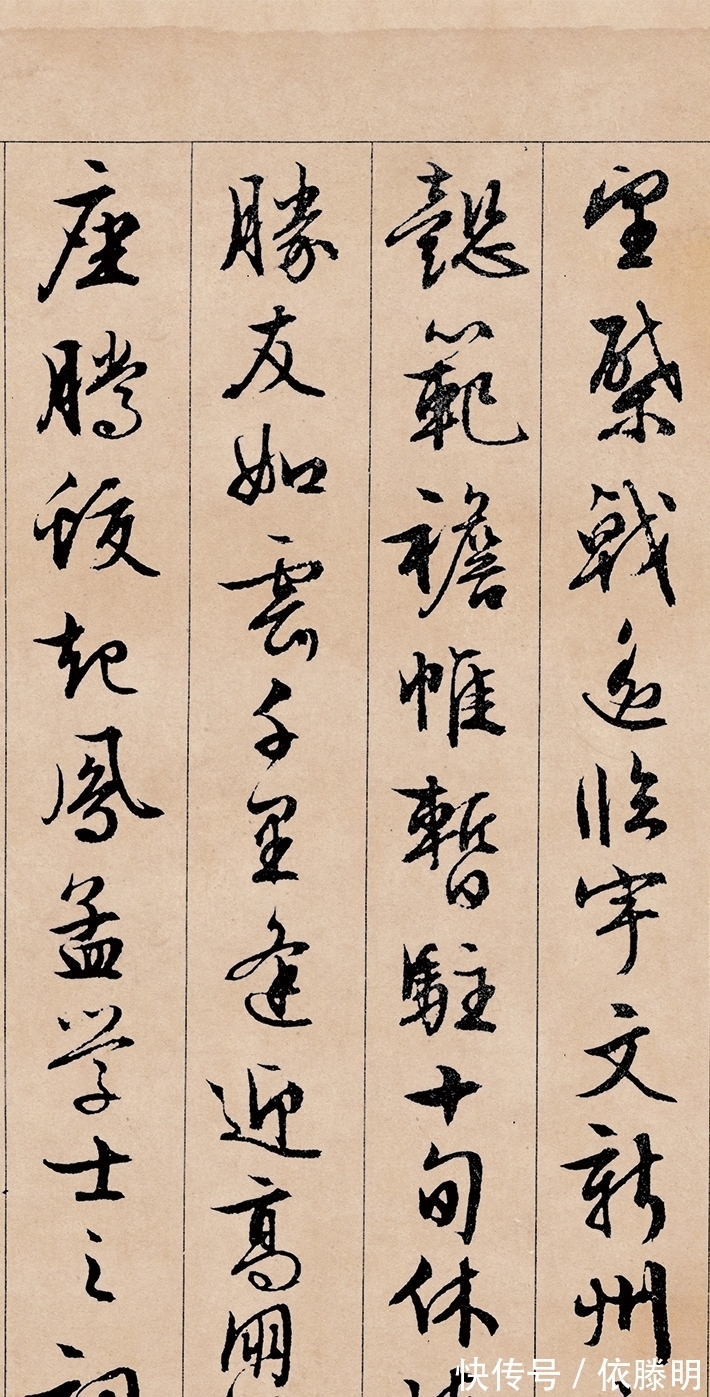 望棨戟遥临宇文新州
懿範襜帷暫駐十旬休
勝友如雲千里逢迎高朋
座騰蛟起鳳孟学士之詞
快传号 / 依滕明